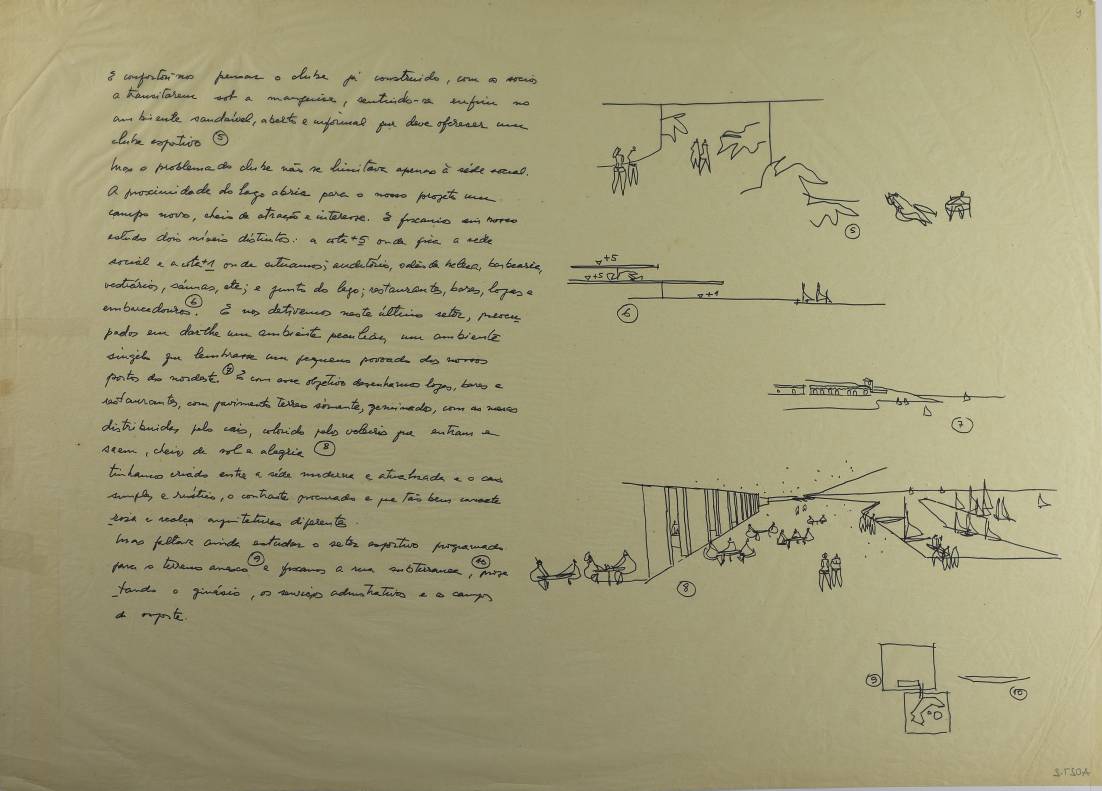 E confortou-nos pensar o clube já construido, com os socios
a transitarem sob a marquise, sentindo-se enfim no
ambiente saudável, aberto e informal que deve oferecer um
clube esportivo 5
Mas o problema do clube não se limitava apenas à séde social.
A proximidade do lago abria para o nosso projeto um
campo novo, cheio de atração e interesse. E fixamos em nosso
estudo dois níveis distintos: a cota +5 onde fica a sede
social e a cota +1 onde situamos; auditório, salão de beleza, barbearia,
vestiários, saunas, etc; e junto do lago; restaurantes, bares, lojas e
embarcadouros. 6 E nos detivemos neste último setor, preocu
pados em dar-lhe um ambiente peculiar, um ambiente
singelo que lembrasse um pequeno povoado dos nossos
portos do nordeste. 7 E com esse objetivo desenhamos lojas, bares e
restaurantes, com pavimento terreo sómente, geminado, com as mesas
distribuidas pelo cais, colorido pelos veleiros que entram e
saem, cheio de sol e alegria 8
Tinhamos criado entre a séde moderna e atualizada e o cais
simples e rústico, o contraste procurado e que tão bem caracte
risa e realça arquiteturas diferentes.
Mas faltava ainda estudar o setor esportivo programado
para o terreno anexo 9 e fixamos a rua subterranea, 10 proje
tando o ginásio, os serviços admnistrativos e os campos
de esporte.
5
+5
+5
+1
6
7
8
9
10
9